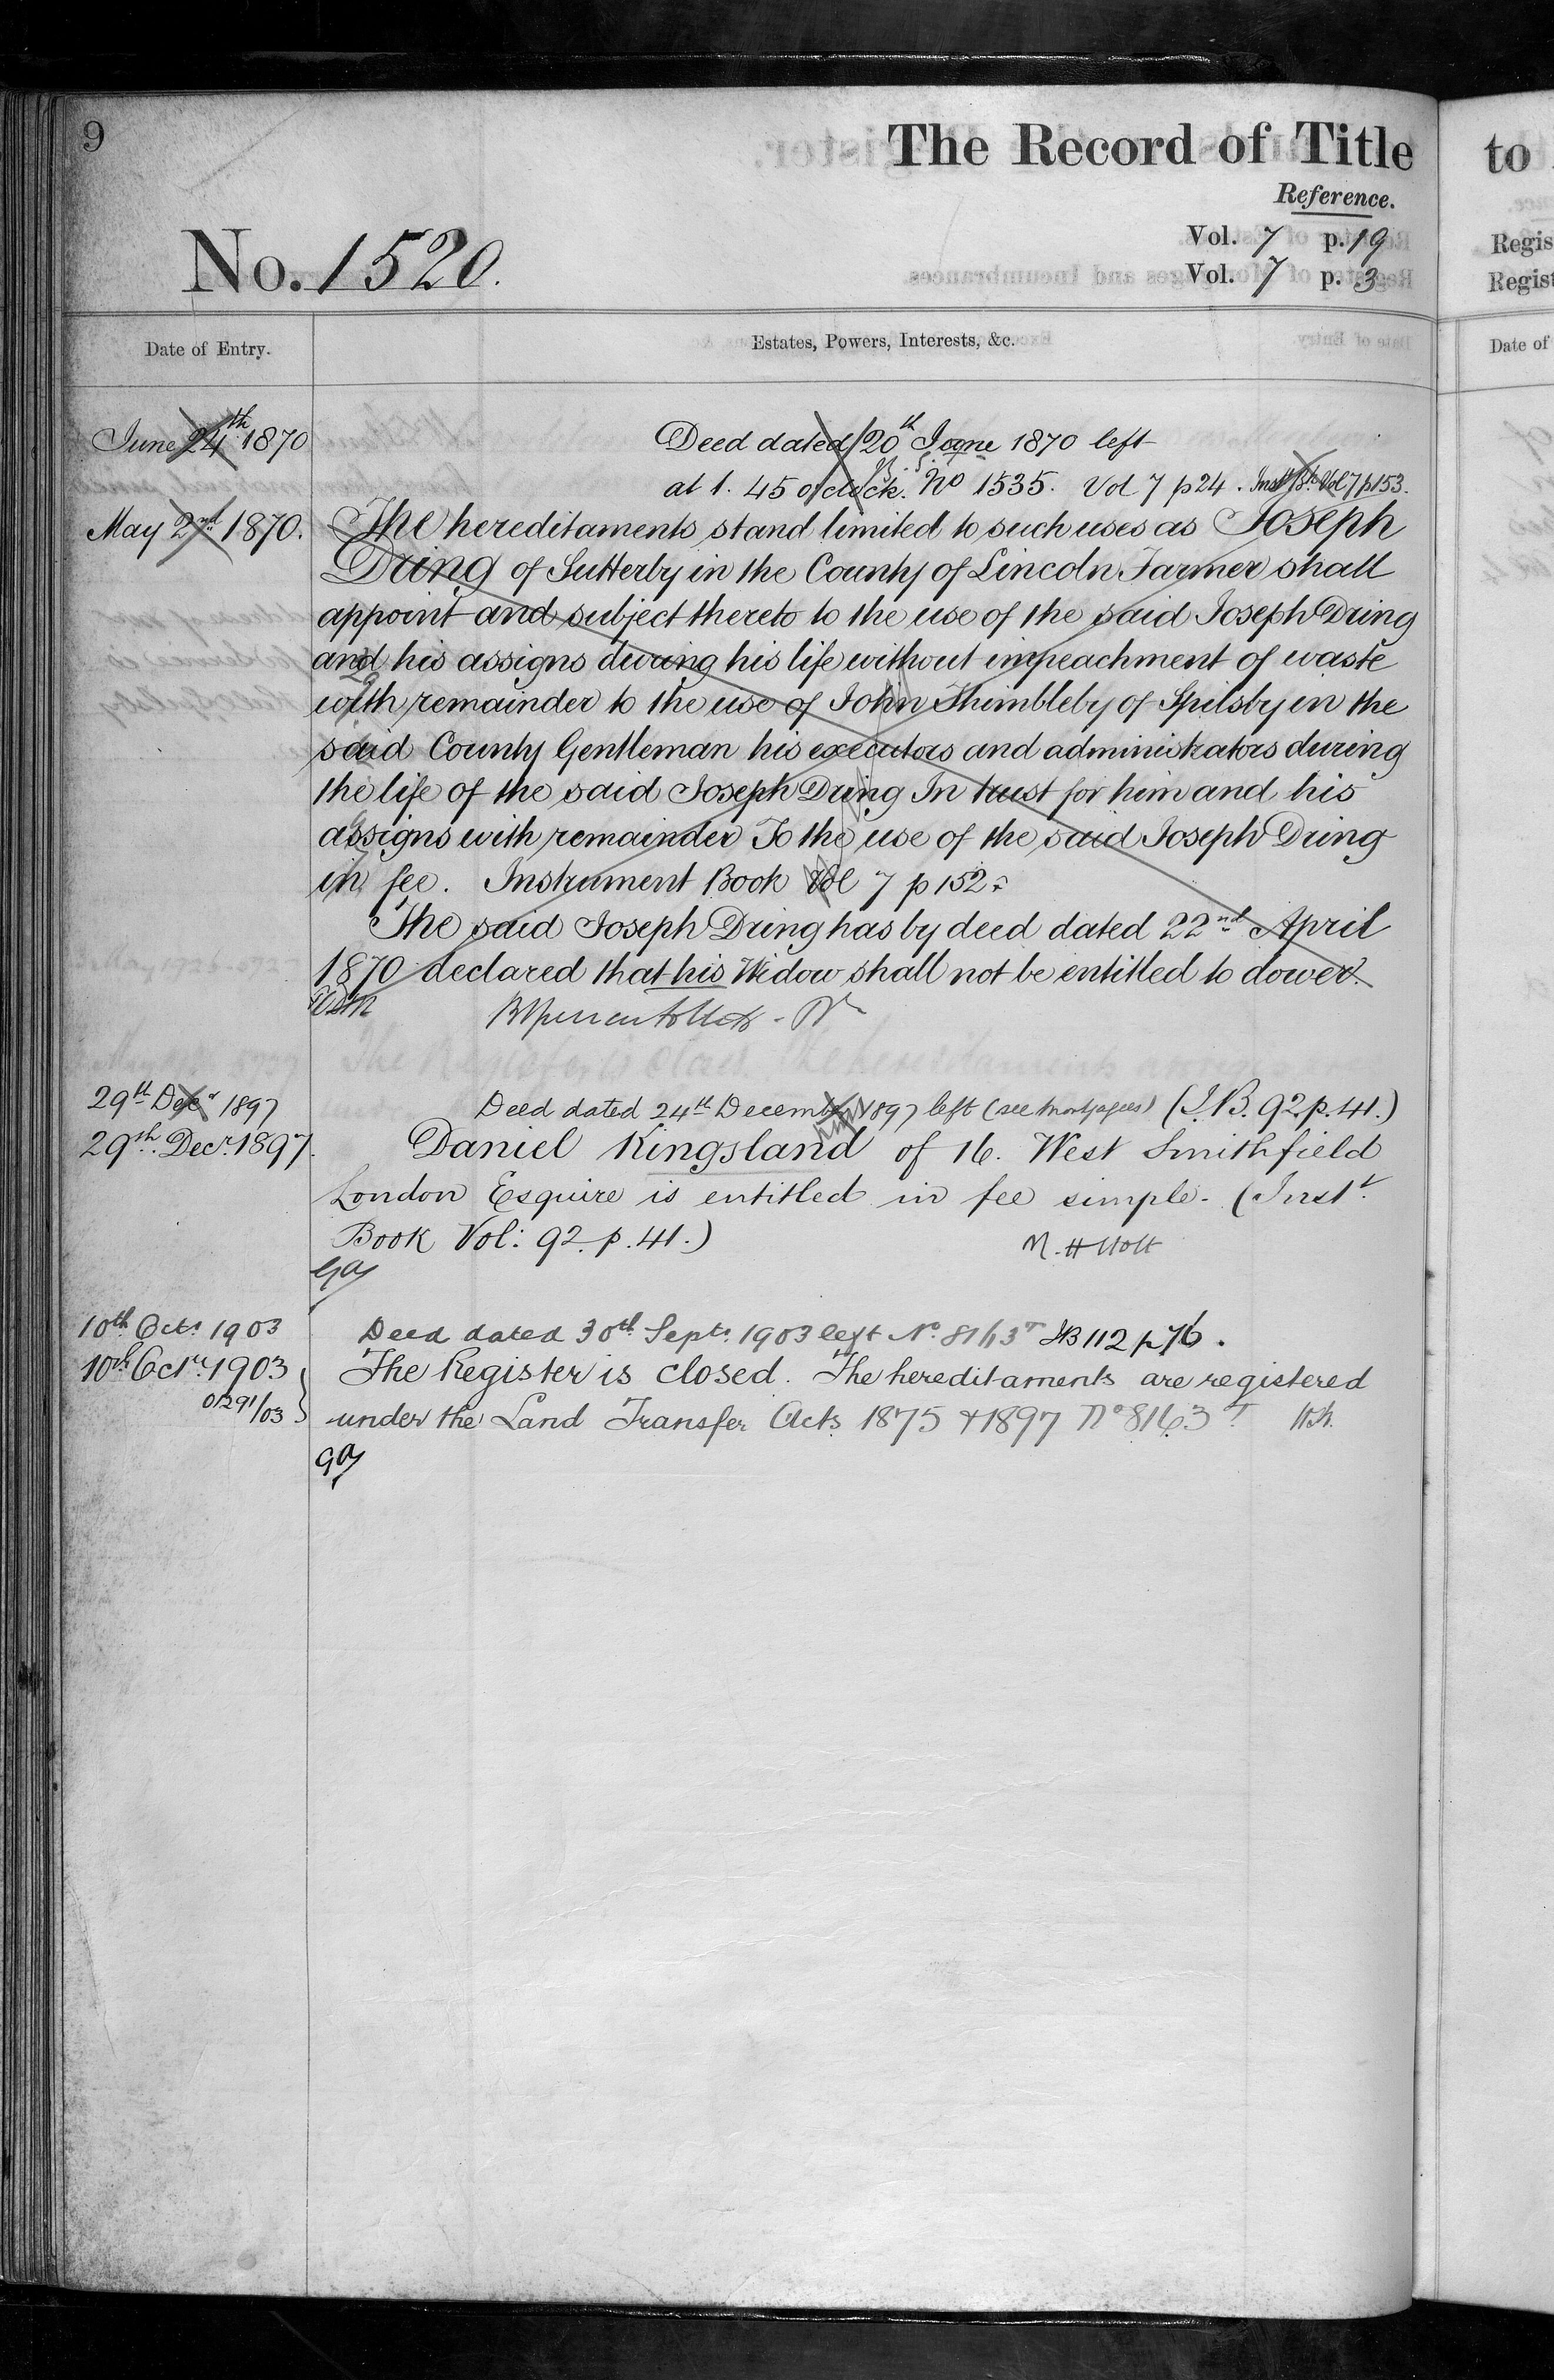 9
The Record of Title
Reference.
Vol. 7 p. 19
No. 1520.
Vol. 7 p. 3
Date of Entry.
Estates, Powers, Interests, &c.
June 24th 1870
Deed dated 20th June 1870 left
at 1. 45 o'clock. No 1535. Vol 7 p 24. Inst Bk Vol 7 p 153.
May 2nd 1870.
The hereditaments stand limited to such uses as Joseph
Dring of Sutterby in the County of Lincoln Farmer shall
appoint and subject thereto to the use of the said Joseph Dring
and his assigns during his life without impeachment of waste
with remainder to the use of John Thimbleby of Spilsby in the
said County Gentleman his executors and administrators during
the life of the said Joseph Dring In trust for him and his
assigns with remainder To the use of the said Joseph Dring
in fee. Instrument Book Vol 7 p 152.
The said Joseph Dring has by deed dated 22nd April
1870 declared that his Widow shall not be entitled to dower.
29th Decr 1897
Deed dated 24th December 1897 left (see Mortgages) (I.B. 92 p. 41.)
29th Decr. 1897.
Daniel Kingsland of 16. West Smithfield
London Esquire is entitled in fee simple. (Instt.
Book Vol: 92. p. 41.)
M. H Holt
10th Octr. 1903
Deed dated 30th Septr. 1903 left No. 8163T IB 112 p 76.
10th Octr. 1903
The Register is closed. The hereditaments are registered
01291/03
under the Land Transfer Acts 1875 & 1897 No 8163T.
to
Regis
Regist
Date of